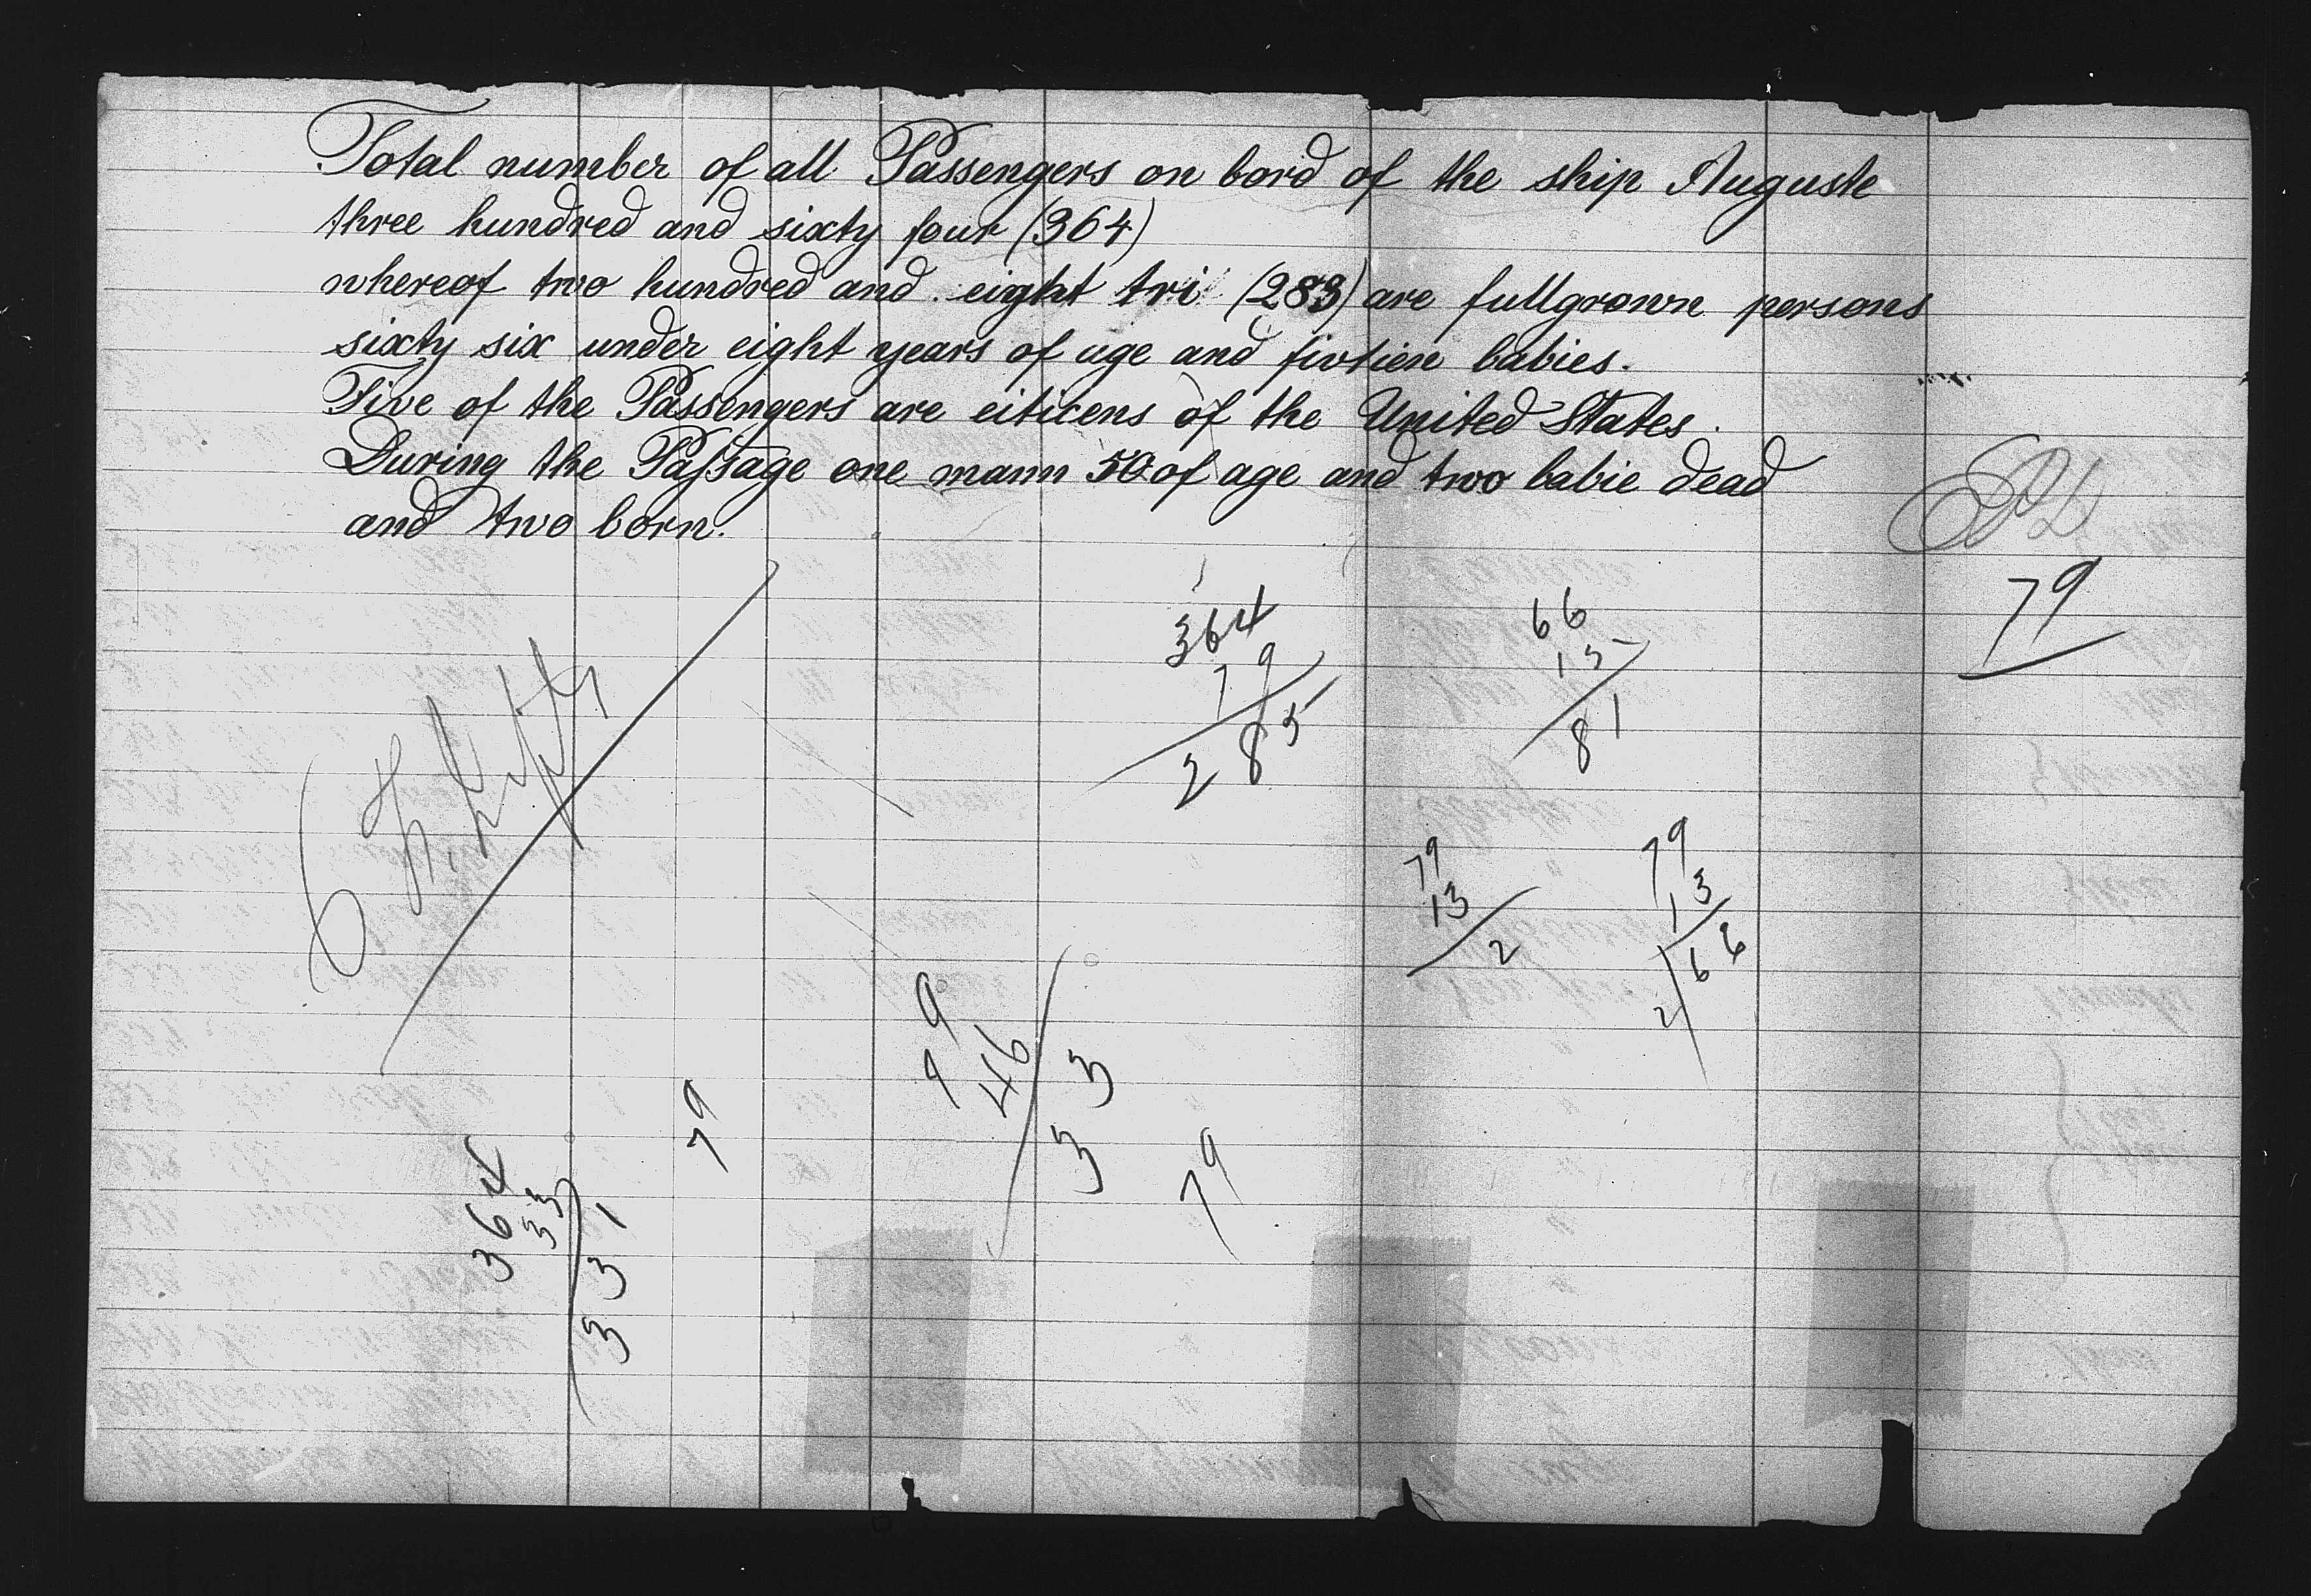 Total number of all Passengers on bord of the ship Auguste
three hundred and sixty four (364)
whereof two hundred and eight tri (283) are fullgrown persons
sixty six under eight years of age and fivtien babies.
Five of the Passengers are citicens of the United States.
During the Passage one mann 50 of age and two babie dead
and two born.
79
364
79
285
66
15
81
79
13
2
79
13
66
2
79
46
33
79
79
364
33
331